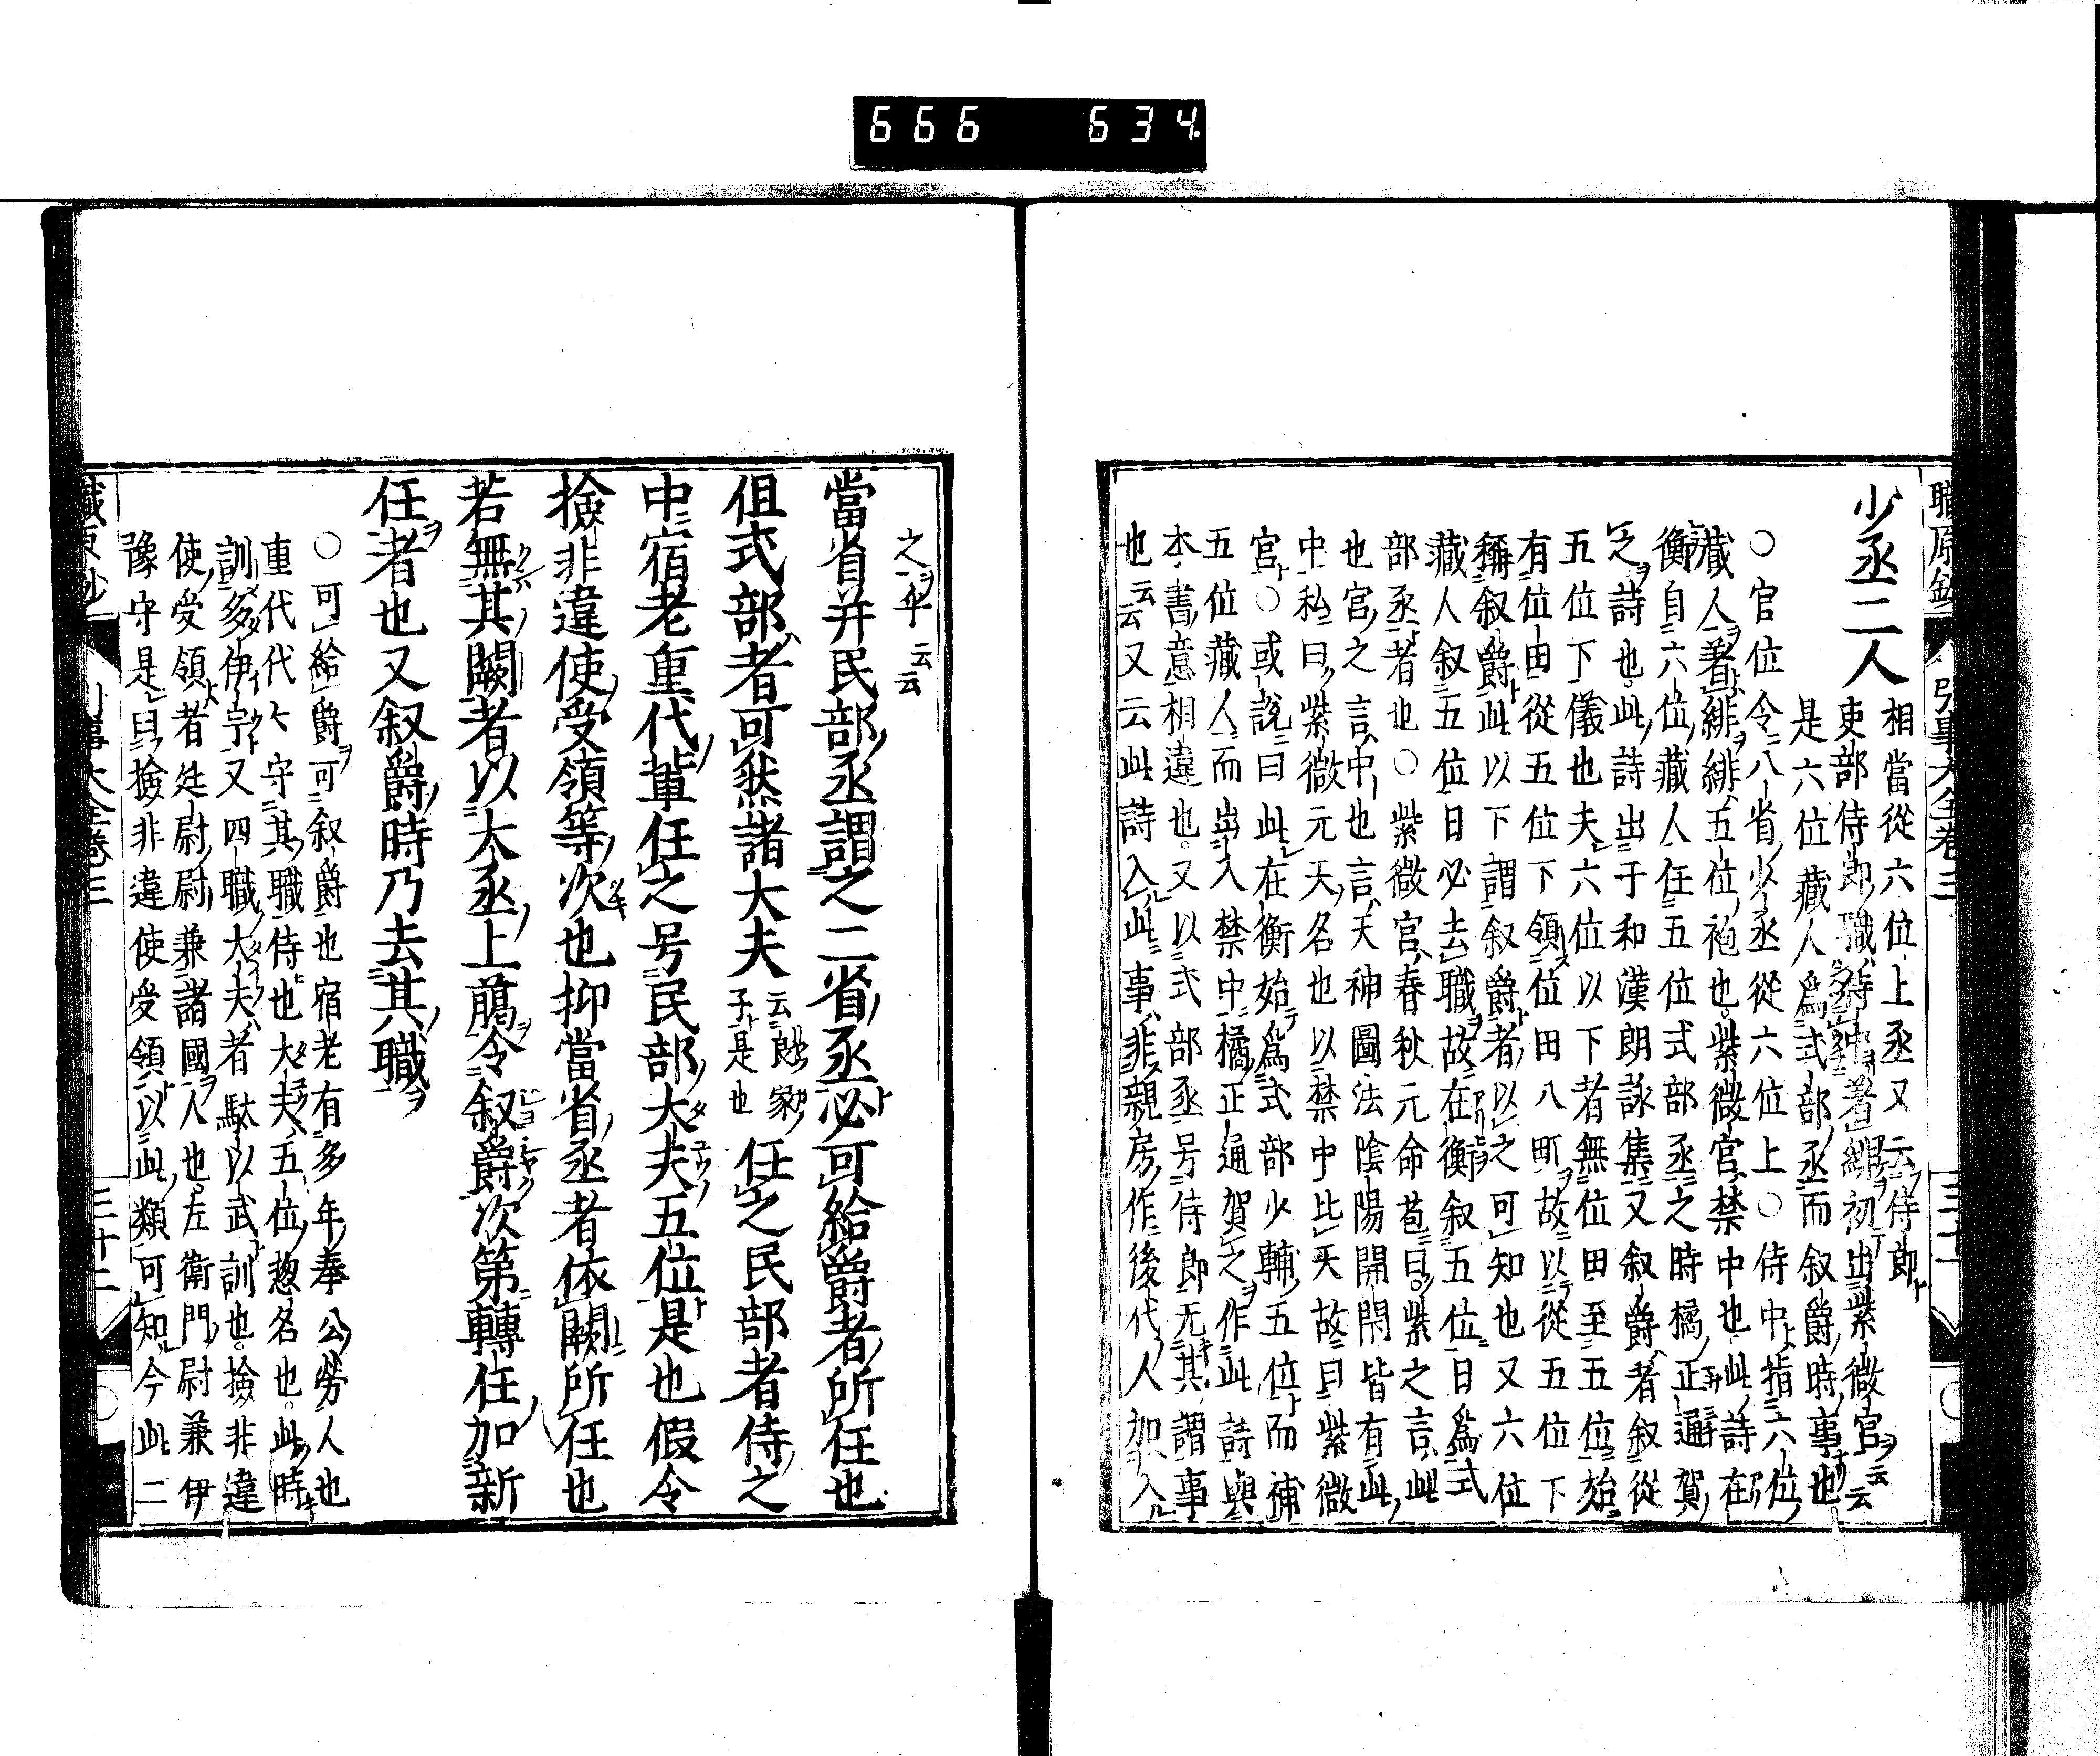 666 634
少丞二人
相當從六位上丞又云侍郎
吏部侍郎職侍中著緋初出紫微官云云
是六位藏人爲式部丞而叙爵時事也
○官位令八省少丞從六位上○侍中指六位
藏人著緋緋五位袍也紫微官禁中也此詩在
衡自六位藏人任五位式部丞之時橘正通賀
之詩也此詩出于和漢朗詠集又叙爵者叙從
五位下儀也夫六位以下者無位田至五位始
有位田從五位下領位田八町故以從五位下
稱叙爵此以下謂叙爵者以之可知也又六位
藏人叙五位日必去職故在衡叙五位日爲式
部丞者也○紫微官春秋元命苞曰紫之言此
也官之言中也言天神圖法陰陽開閇皆有此
中私曰紫微元天名也以禁中比天故曰紫微
宮○或說曰此在衡始爲式部少輔五位而補
五位藏人而出入禁中橘正通賀之作此詩與
本書意相違也又以式部丞号侍郎无其謂事
也云云又云此詩入此事非親房作後代人加入
之乎云云
當省并民部丞謂之二省丞必可給爵者所任也
但式部者可然諸大夫云良家子是也任之民部者侍之
中宿老重代輩任之号民部大夫五位是也假令
撿非違使受領等次也抑當省丞者依闕所任也
若無其闕者以大丞上﨟令叙爵次第轉任加新
任者也又叙爵時乃去其職
○可給爵可叙爵也宿老有多年奉公勞人也
重代代々守其職侍也大夫五位惣名也此時
訓多伊宇又四職大夫者駄以武訓也撿非違
使受領者廷尉尉兼諸國人也左衛門尉兼伊
豫守是曰撿非違使受領以此類可知今此二
三十二